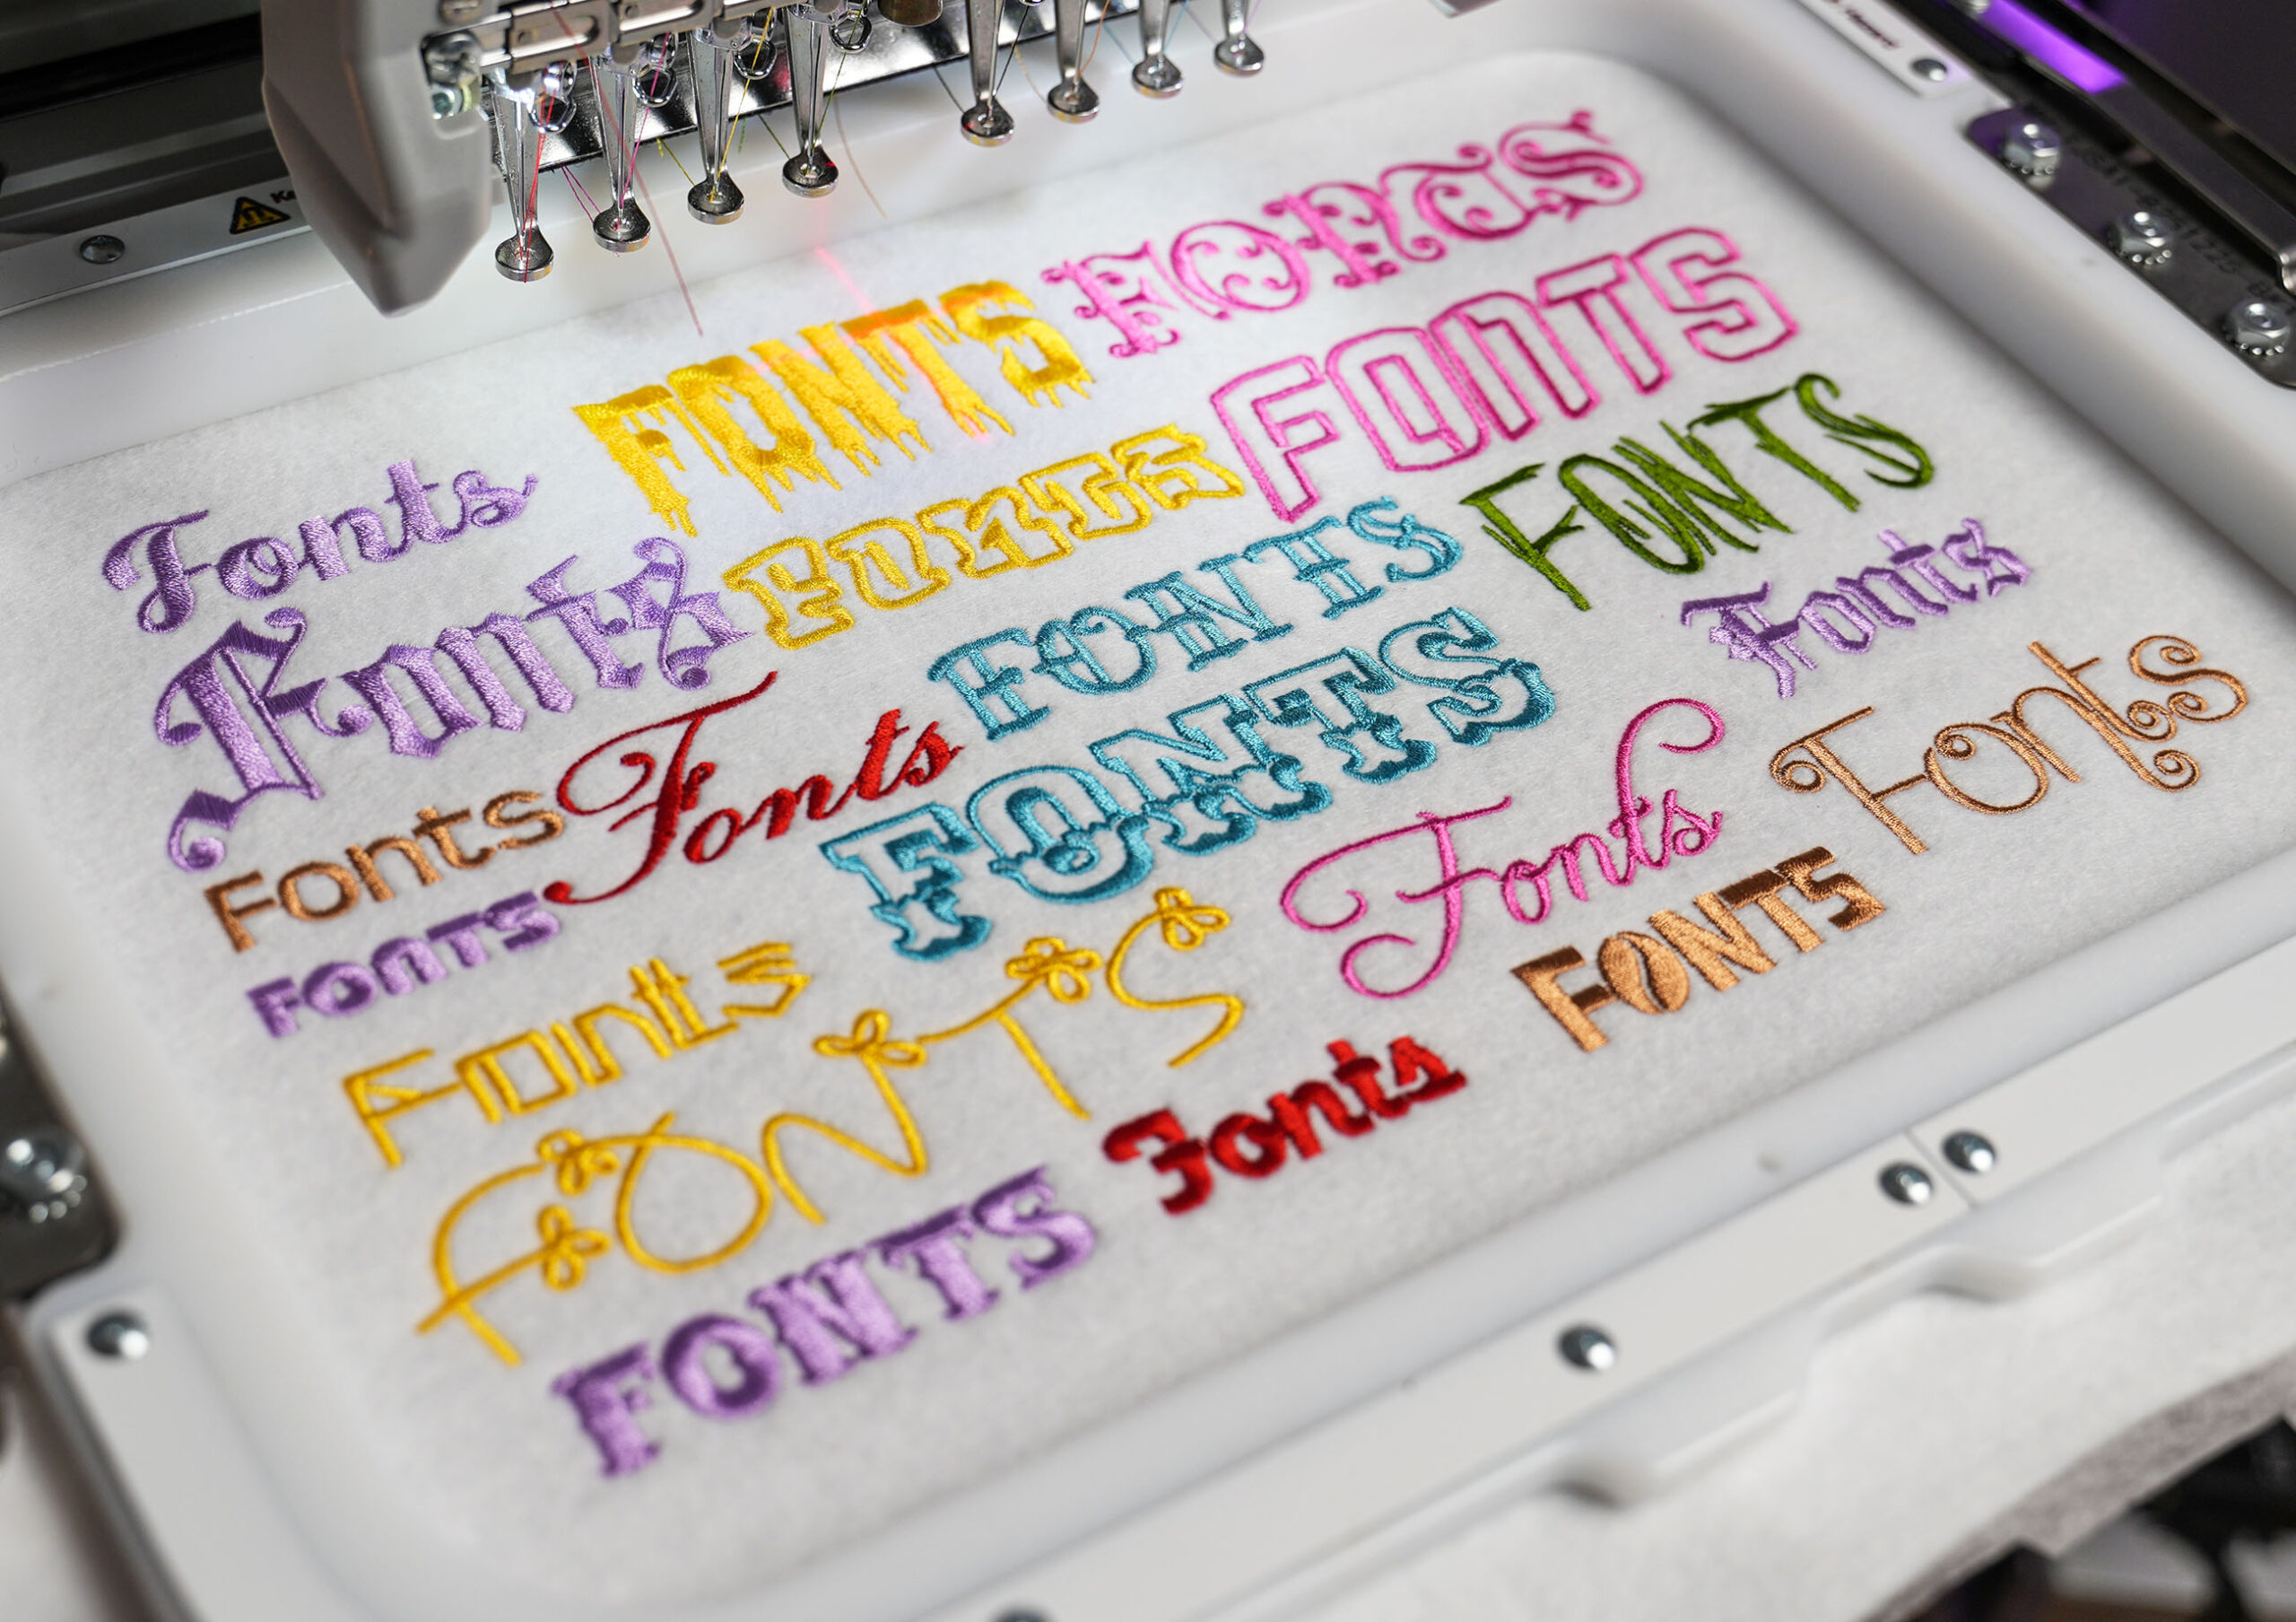 FONTS
FONTS
Fonts
FONTS
FONTS
Fonts
FONTS
FONTS
Fonts
Fonts
FONTS
Fonts
Fonts
Fonts
FONTS
FONTS
Fonts
FONTS
Fonts
FONTS